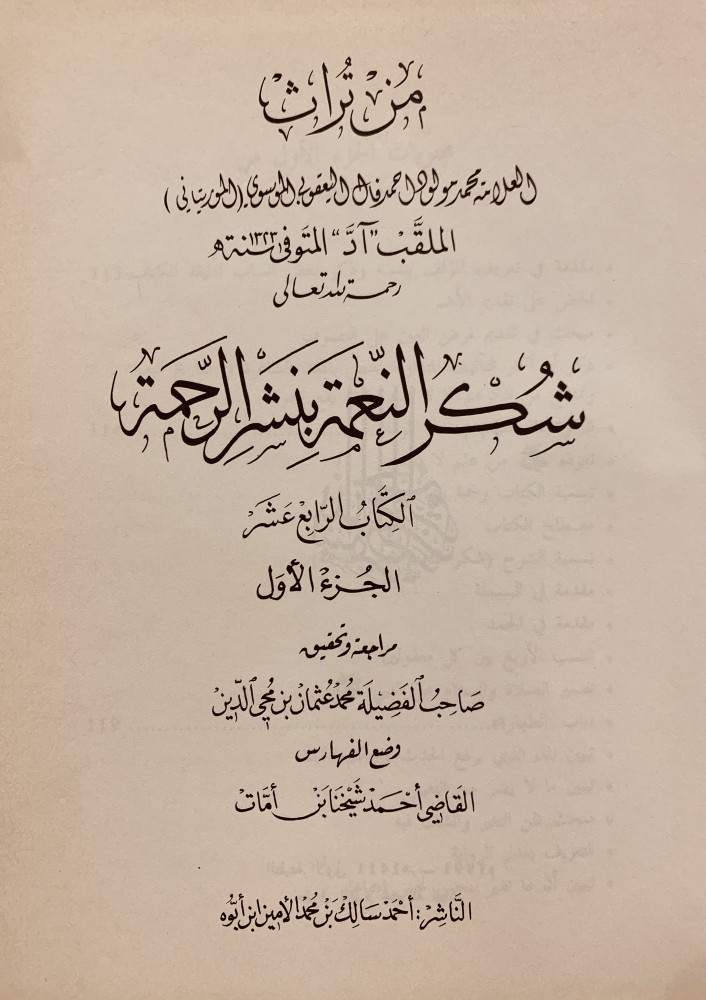 مِنْ تُراثِ
العلامة محمد مولود احمد فال اليعقوبي الموسوي (الموريتاني)
الملقَّبْ "آدَّ" المتوفى سنة ١٣٢٣ه
رحمة الله تعالى
شُكْرُ النِّعْمَةِ بِنَشْرِ الرَّحْمَةِ
الكِتَابُ الرَّابِعْ عَشَرَ
الجُزءُ الأَوَل
مراجعة وتحقيق
صَاحِبُ الفَضِيلَة مُحَمَّدْ عُثْمَان بِنْ مُحْيِ الدِّينْ
وضع الفهارس
القَاضِي أَحْمَدْ شَيْخْنَا بَنْ أمَّات
النَّاشِرْ: أحْمَدْ سَالِكْ بَنْ مُحَمَّدْ الأمِينْ ابن أبُّوه